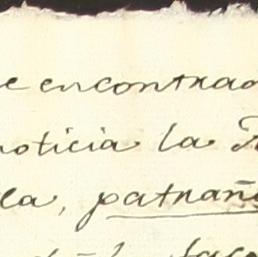 e encontrad
noticia la
la, patrañ